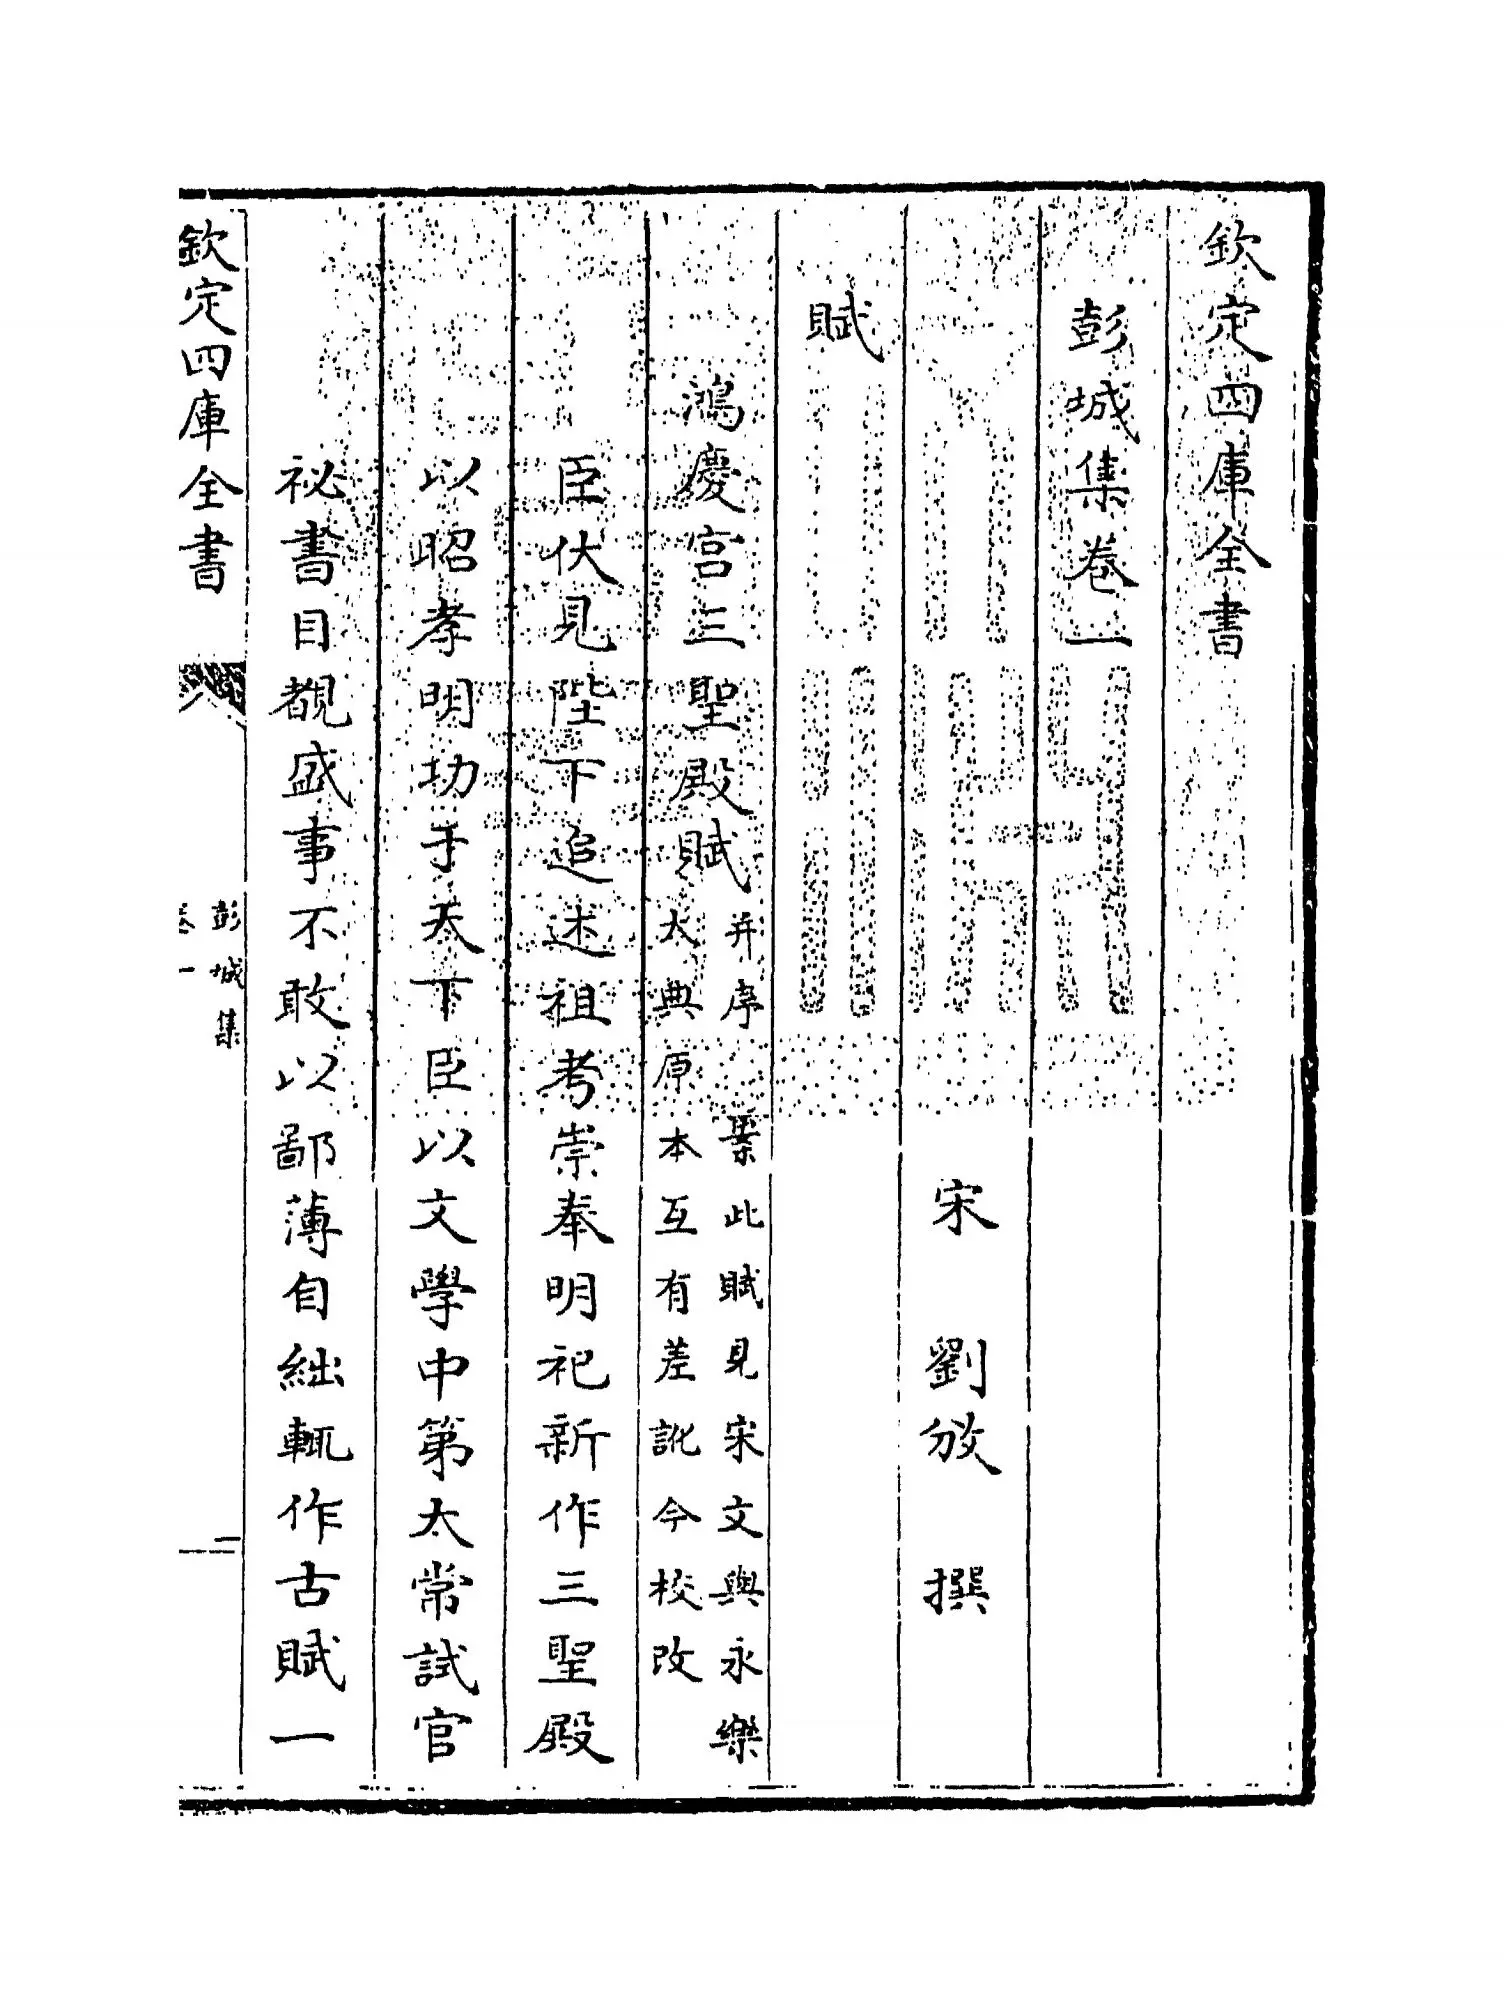 欽定四庫全書
彭城集卷一
宋 劉攽 撰
賦
鴻慶宮三聖殿賦并序 案此賦見宋文與永樂大典原本互有差訛今校改
臣伏見陛下追述祖考崇奉明祀新作三聖殿
以昭孝明功于天下臣以文學中第太常試官
祕書目覩盛事不敢以鄙薄自絀輒作古賦一
欽定四庫全書
彭城集
卷一